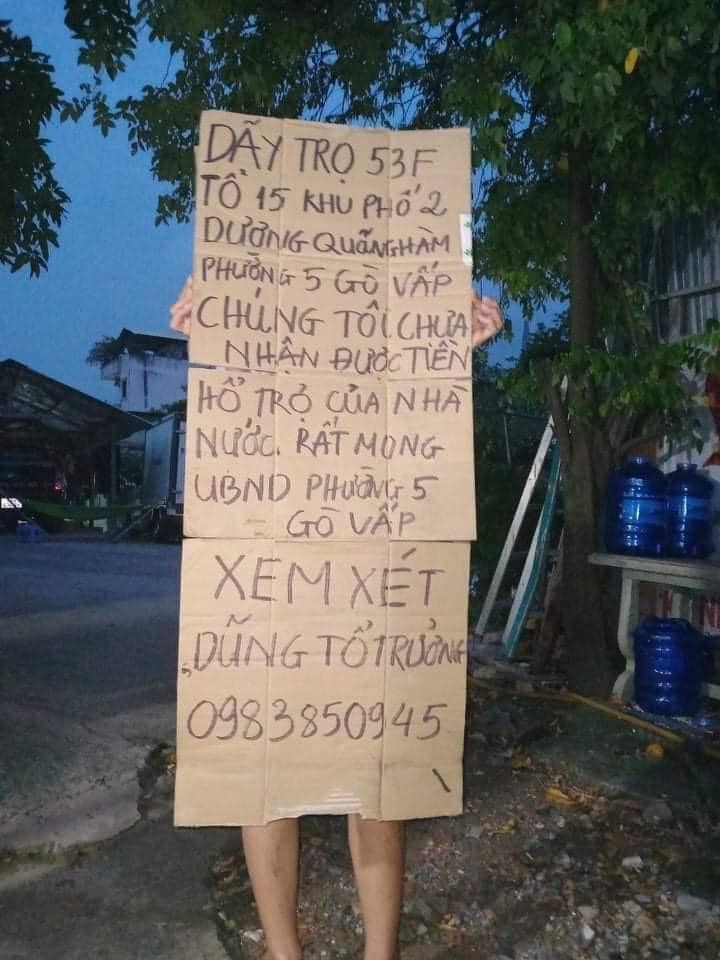 DÃY TRỌ 53F
TỔ 15 KHU PHỐ 2
DƯƠNG QUÃNG HÀM
PHƯỜNG 5 GÒ VẤP
CHÚNG TÔI CHƯA
NHẬN ĐƯỢC TIỀN
HỔ TRỢ CỦA NHÀ
NƯỚC. RẤT MONG
UBND PHƯỜNG 5
GÒ VẤP
XEM XÉT
DŨNG TỔ TRƯỞNG
0983850945